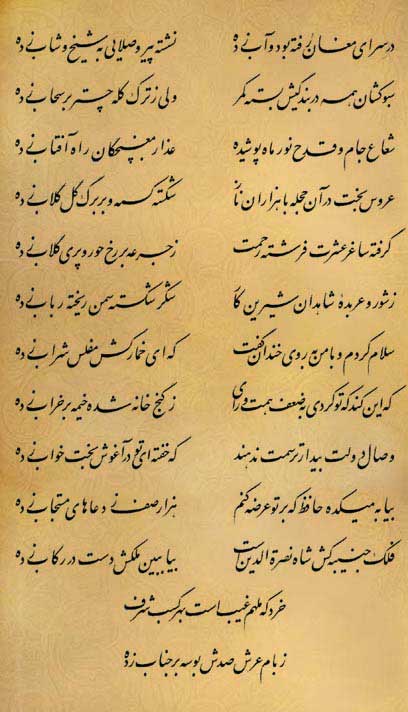 در سرای مغان رفته بود و آب زده نشسته پیر و صلایی به شیخ و شاب زده
سبوکشان همه در بندگیش بسته کمر ولی ز ترک کله چتر بر سحاب زده
شعاع جام و قدح نور ماه پوشیده عذار مغبچگان راه آفتاب زده
عروس بخت در آن حجله با هزاران ناز شکسته کسمه و بر برگ گل گلاب زده
گرفته ساغر عشرت فرشته رحمت ز جرعه بر رخ حور و پری گلاب زده
ز شور و عربده شاهدان شیرین کار شکر شکسته سمن ریخته رباب زده
سلام کردم و با من به روی خندان گفت که ای خمارکش مفلس شراب زده
که این کند که تو کردی به ضعف همت و رای ز گنج خانه شده خیمه بر خراب زده
وصال دولت بیدار ترسمت ندهند که خفته‌ای تو در آغوش بخت خواب زده
بیا به میکده حافظ که بر تو عرضه کنم هزار صف ز دعاهای مستجاب زده
فلک جنیبه کش شاه نصرة الدین است بیا ببین ملکش دست در رکاب زده
خرد که ملهم غیب است بهر کسب شرف
ز بام عرش صدش بوسه بر جناب زده